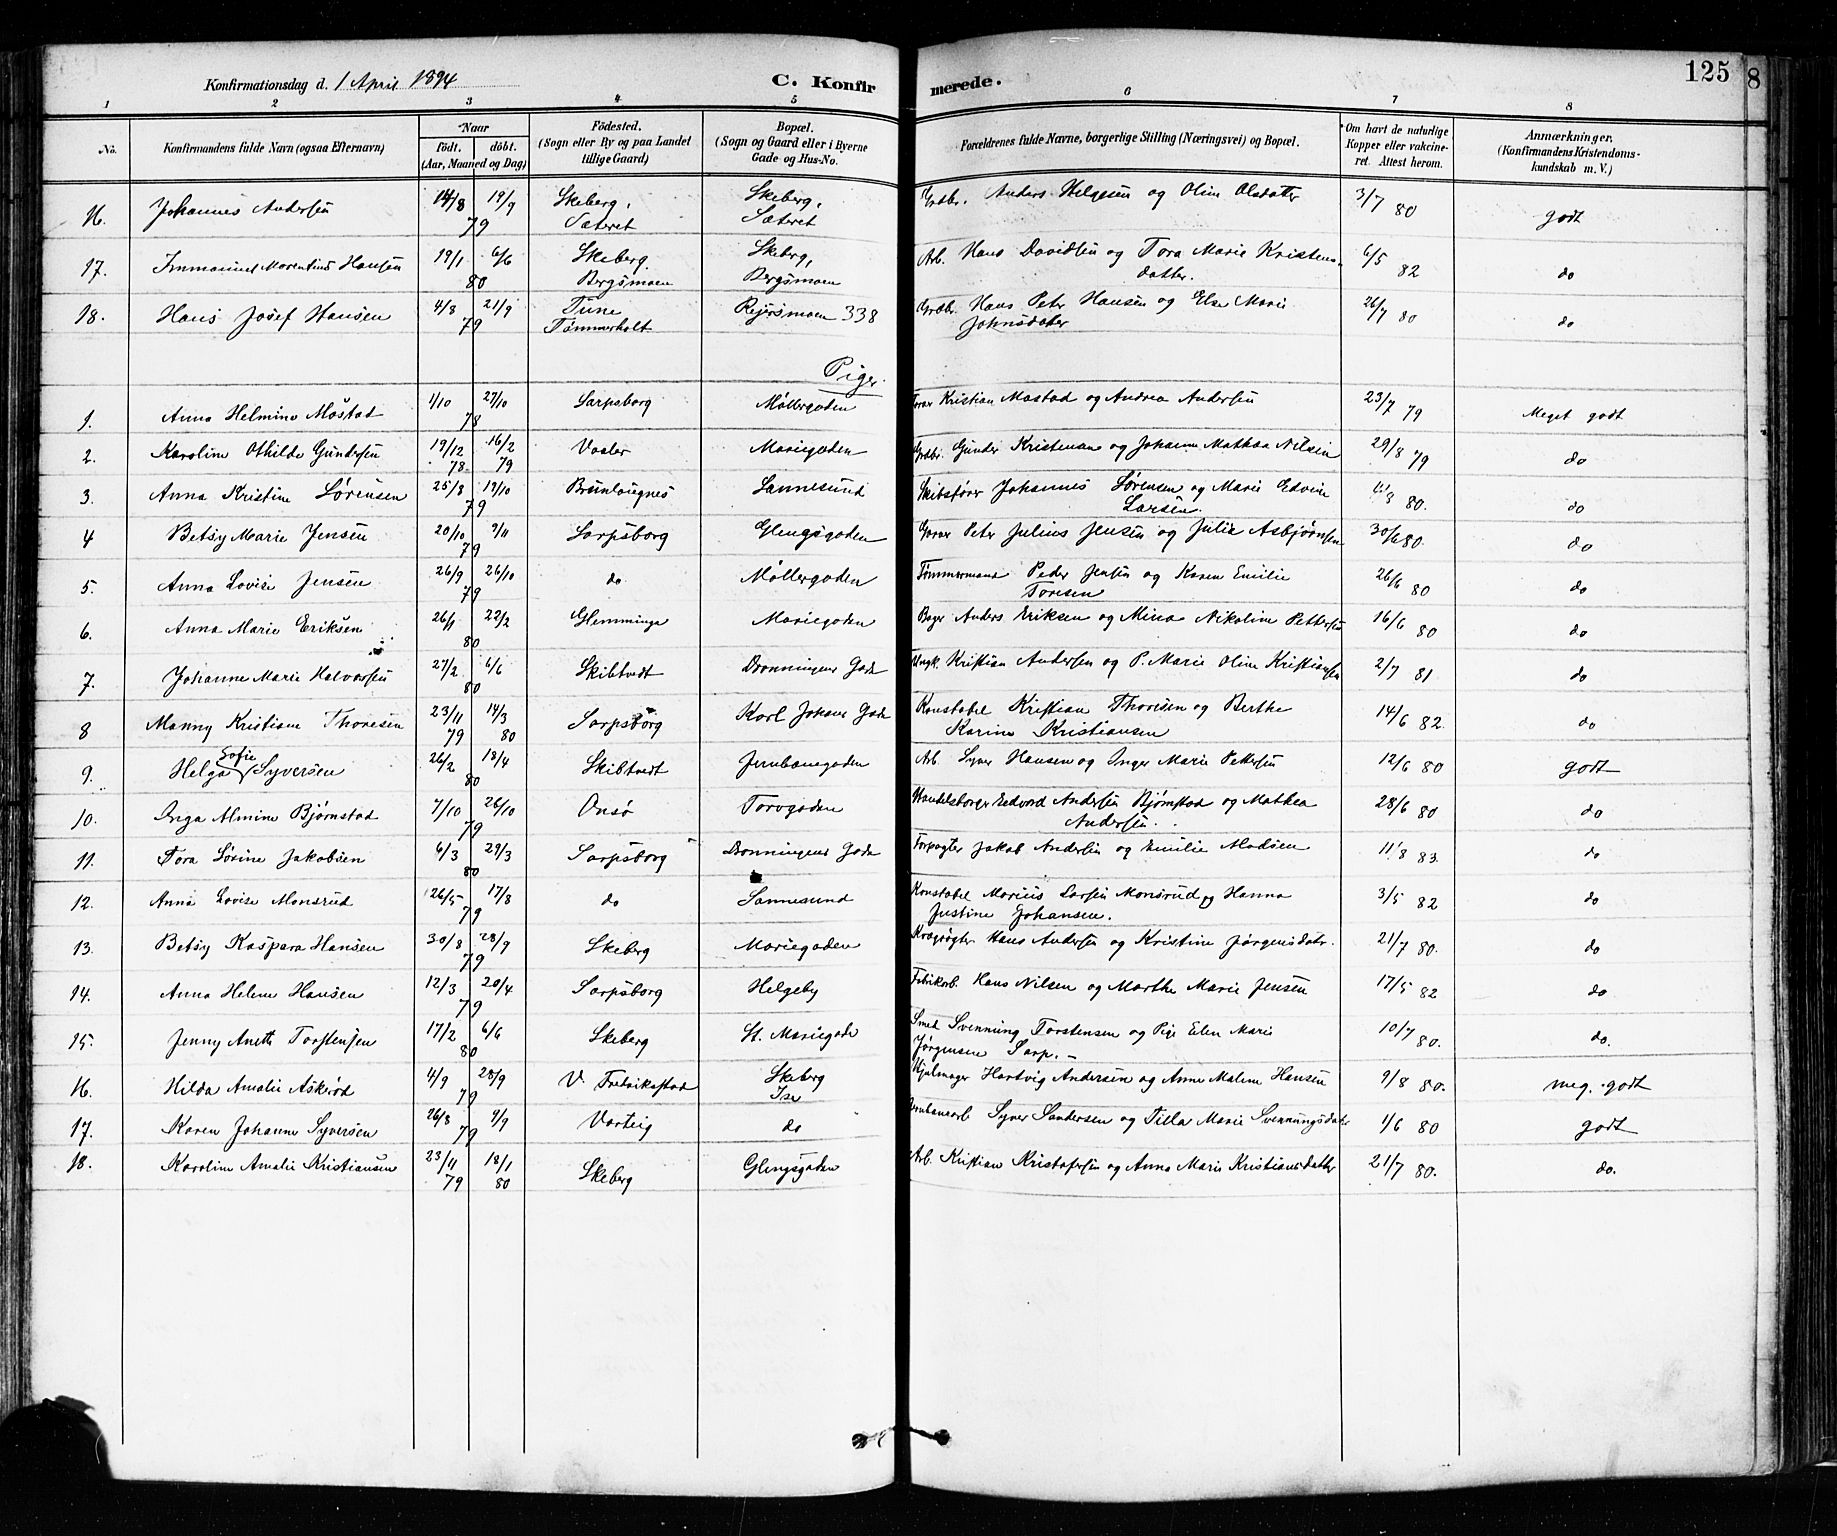 Konfirmationsdag d. 1 April 1894
C. Konfir
merede.
125
8
1 2 3 4 5 6 7 8
No.
Konfirmandens fulde Navn (ogsaa Efternavn)
Naar
födt. döbt.
(Aar, Maaned og Dag)
Födested.
(Sogn eller By og paa Landet
tillige Gaard)
Bopæl.
(Sogn og Gaard eller i Byerne
Gade og Hus-No.
Forældrenes fulde Navne, borgerlige Stilling (Næringsvei) og Bopæl.
Om havt de naturlige
Kopper eller vakcine-
ret. Attest herom.
Anmærkninger,
(Konfirmandens Kristendoms-
kundskab m. V.)
16. Johannes Andersen 14/8 19/9 79 Skeberg, Sæteret Skeberg, Sæteret Grdbr. Anders Helgesen og Oline Olsdatter 3/7 80 godt
17. Immanuel Martinius Hansen 19/1 6/6 80 Skeberg. Bergsmoen Skeberg, Bergsmoen Arb. Hans Davidsen og Tora Marie Kristens-
datter. 6/5 82 do
18. Hans Josef Hansen 4/8 21/9 79 Tune Tømmerholt Rejersmoen 338 Grdbr. Hans Peter Hansen og Else Marie
Johnsdater 26/7 80 do
Piger.
1. Anna Helmine Mostad 1/10 27/10 78 Sarpsborg Møllergaden Kristian Mostad og Andrea Andersen 23/7 79 Meget godt
2. Karoline Othilde Gundersen 19/12 78 16/2 79 Vaaler Mariegaden Grdbr. Gunder Kristensen og Johanne Mathea Nilsen 29/8 79 do
3. Anna Kristine Sørensen 25/8 19/10 79 Brunlaugnes Sannesund Skibsfører Johannes Sørensen og Marie Edvine
Larsen. 80. do
4 Betsy Marie Jensen 20/10 9/11 79 Sarpsborg Glengsgaden Garver Peter Julius Jensen og Julie Asbjørnsen 30/6 80. do
5. Anna Lovise Jensen 26/9 26/10 79 do Møllergaden Tømmermand Peder Jensen og Karen Emilie
Toresen 26/6 80 do
6. Anna Marie Eriksen 26/1 22/2 80 Glemminge Mariegaden Bager Anders Eriksen og Mina Nikoline Pettersen 16/6 80 do
7. Johanne Marie Halvorsen 27/2 6/6 80 Skibtvedt Dronningens Gade Ungk. Kristian Andersen og P. Marie Oline Kristiansen 2/7 81 do
8 Manny Kristiane Thoresen 23/11 79 14/3 80 Sarpsborg Karl Johans Gade Konstabel Kristian Thoresen og Berthe
Karine Kristiansen 14/6 82. do
9. Helga Sofie Syversen 26/2 18/4 80 Skibtvedt Jernbanegaden Arb. Syver Hansen og Inger Marie Pettersen 12/6 80 godt
10. Inga Almine Bjørnstad 7/10 26/10 79 Onsø Torvgaden Handelsborger Edvard Andersen Bjørnstad og Mathea
Andersen. 28/6 80 do
11. Tora Sørine Jakobsen 6/3 29/3 80 Sarpsborg Dronningens Gade Forpagter Jakob Andersen og Emilie Madsen 11/8 83. do
12. Anna Lovise Monsrud 26/5 17/8 79 do Sannesund Konstabel Marius Larsen Monsrud og Hanna
Justine Johansen. 3/5 82 do
13. Betsy Kaspara Hansen 30/8 28/9 79 Skeberg Mariegaden Hans Andersen og Kristine Jørgensdatr. 21/7 80. do
14. Anna Helene Hansen 12/3 20/4 79 Sarpsborg Helgeby Fabrikarb. Hans Nilsen og Marthe Marie Jensen 17/5 82 do
15. Jenny Anette Torstensen 17/2 6/6 80 Skeberg St. Mariegade Smed Svenning Torstensen og Pige Elen Marie
Jørgensen Sarp. - 10/7 80. do.
16. Hilda Amalie Askerød 4/9 28/9 79 V. Fredrikstad Skeberg Ise Hjulmager Hartvig Andersen og Anne Malene Hansen 9/8 80. meg. godt
17. Karen Johanne Syversen 26/8 9/9 79 Varteig do Jernbanearb Syver Sandersen og Tilla Marie Svenningsdater 1/6 80 godt
18. Karoline Amalie Kristiansen 23/11 79 18/1 80 Skeberg Glengsgaden Arb. Kristian Kristofersen og Anna Marie Kristiansdatter 21/7 80. do.